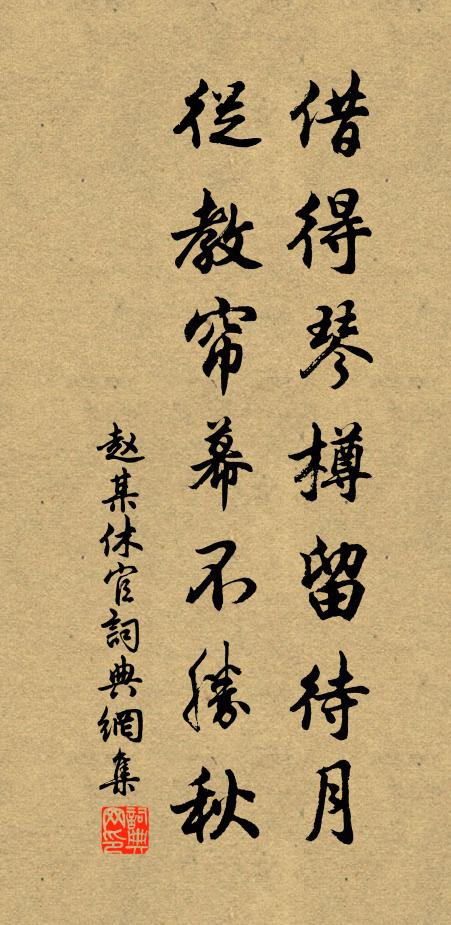 借得琴樽留待月
從教帘幕不勝秋
赵某休官詞典網集
詞典网印